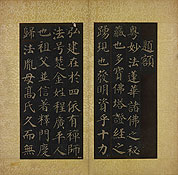 題額
粵妙法蓮華諸佛之秘
藏也多寶佛塔證經之
踴現也發明資乎十力
弘建在於四依有禪師
法号楚金姓程廣平人
也祖父並信著釋門慶
歸法胤母高氏久而無